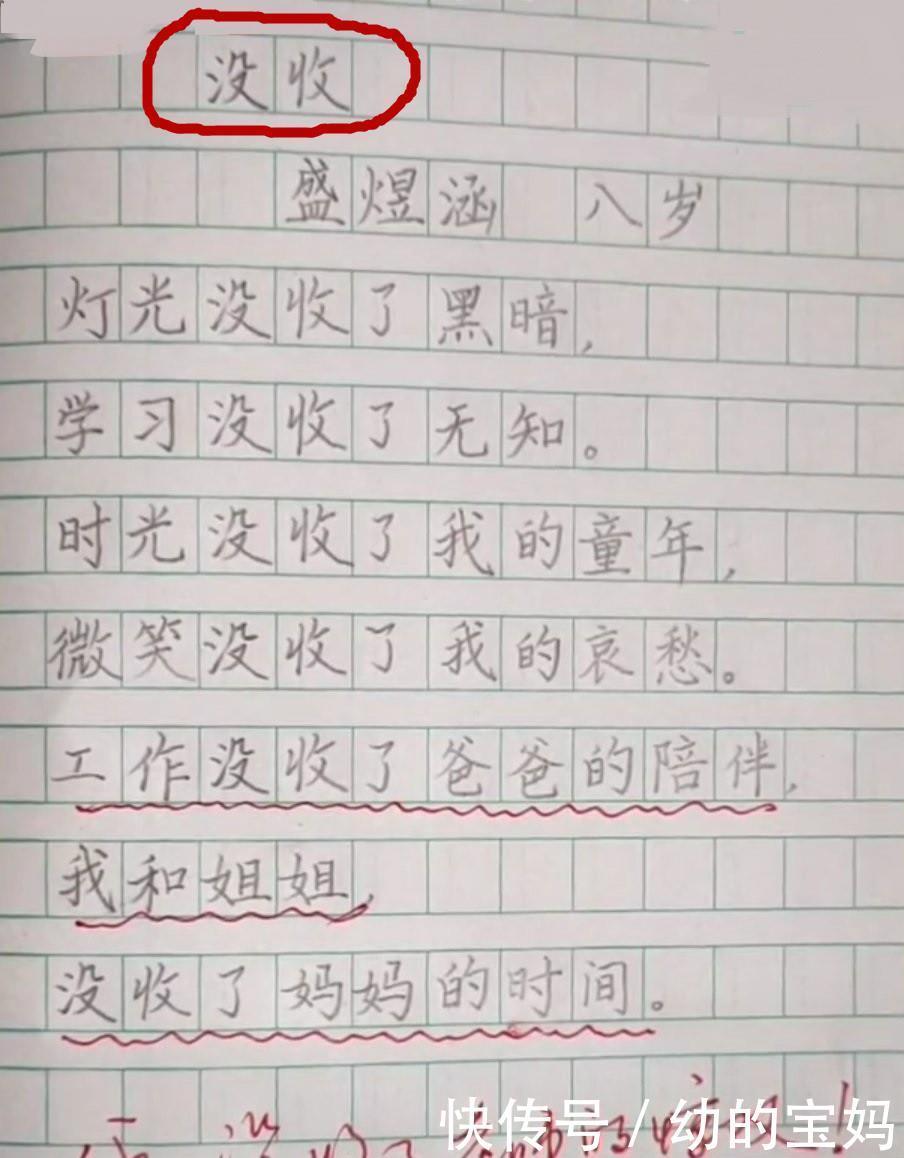 没收
盛煜涵 八岁
灯光没收了黑暗，
学习没收了无知。
时光没收了我的童年，
微笑没收了我的哀愁。
工作没收了爸爸的陪伴，
我和姐姐，
没收了妈妈的时间。
快传号/幼的宝妈